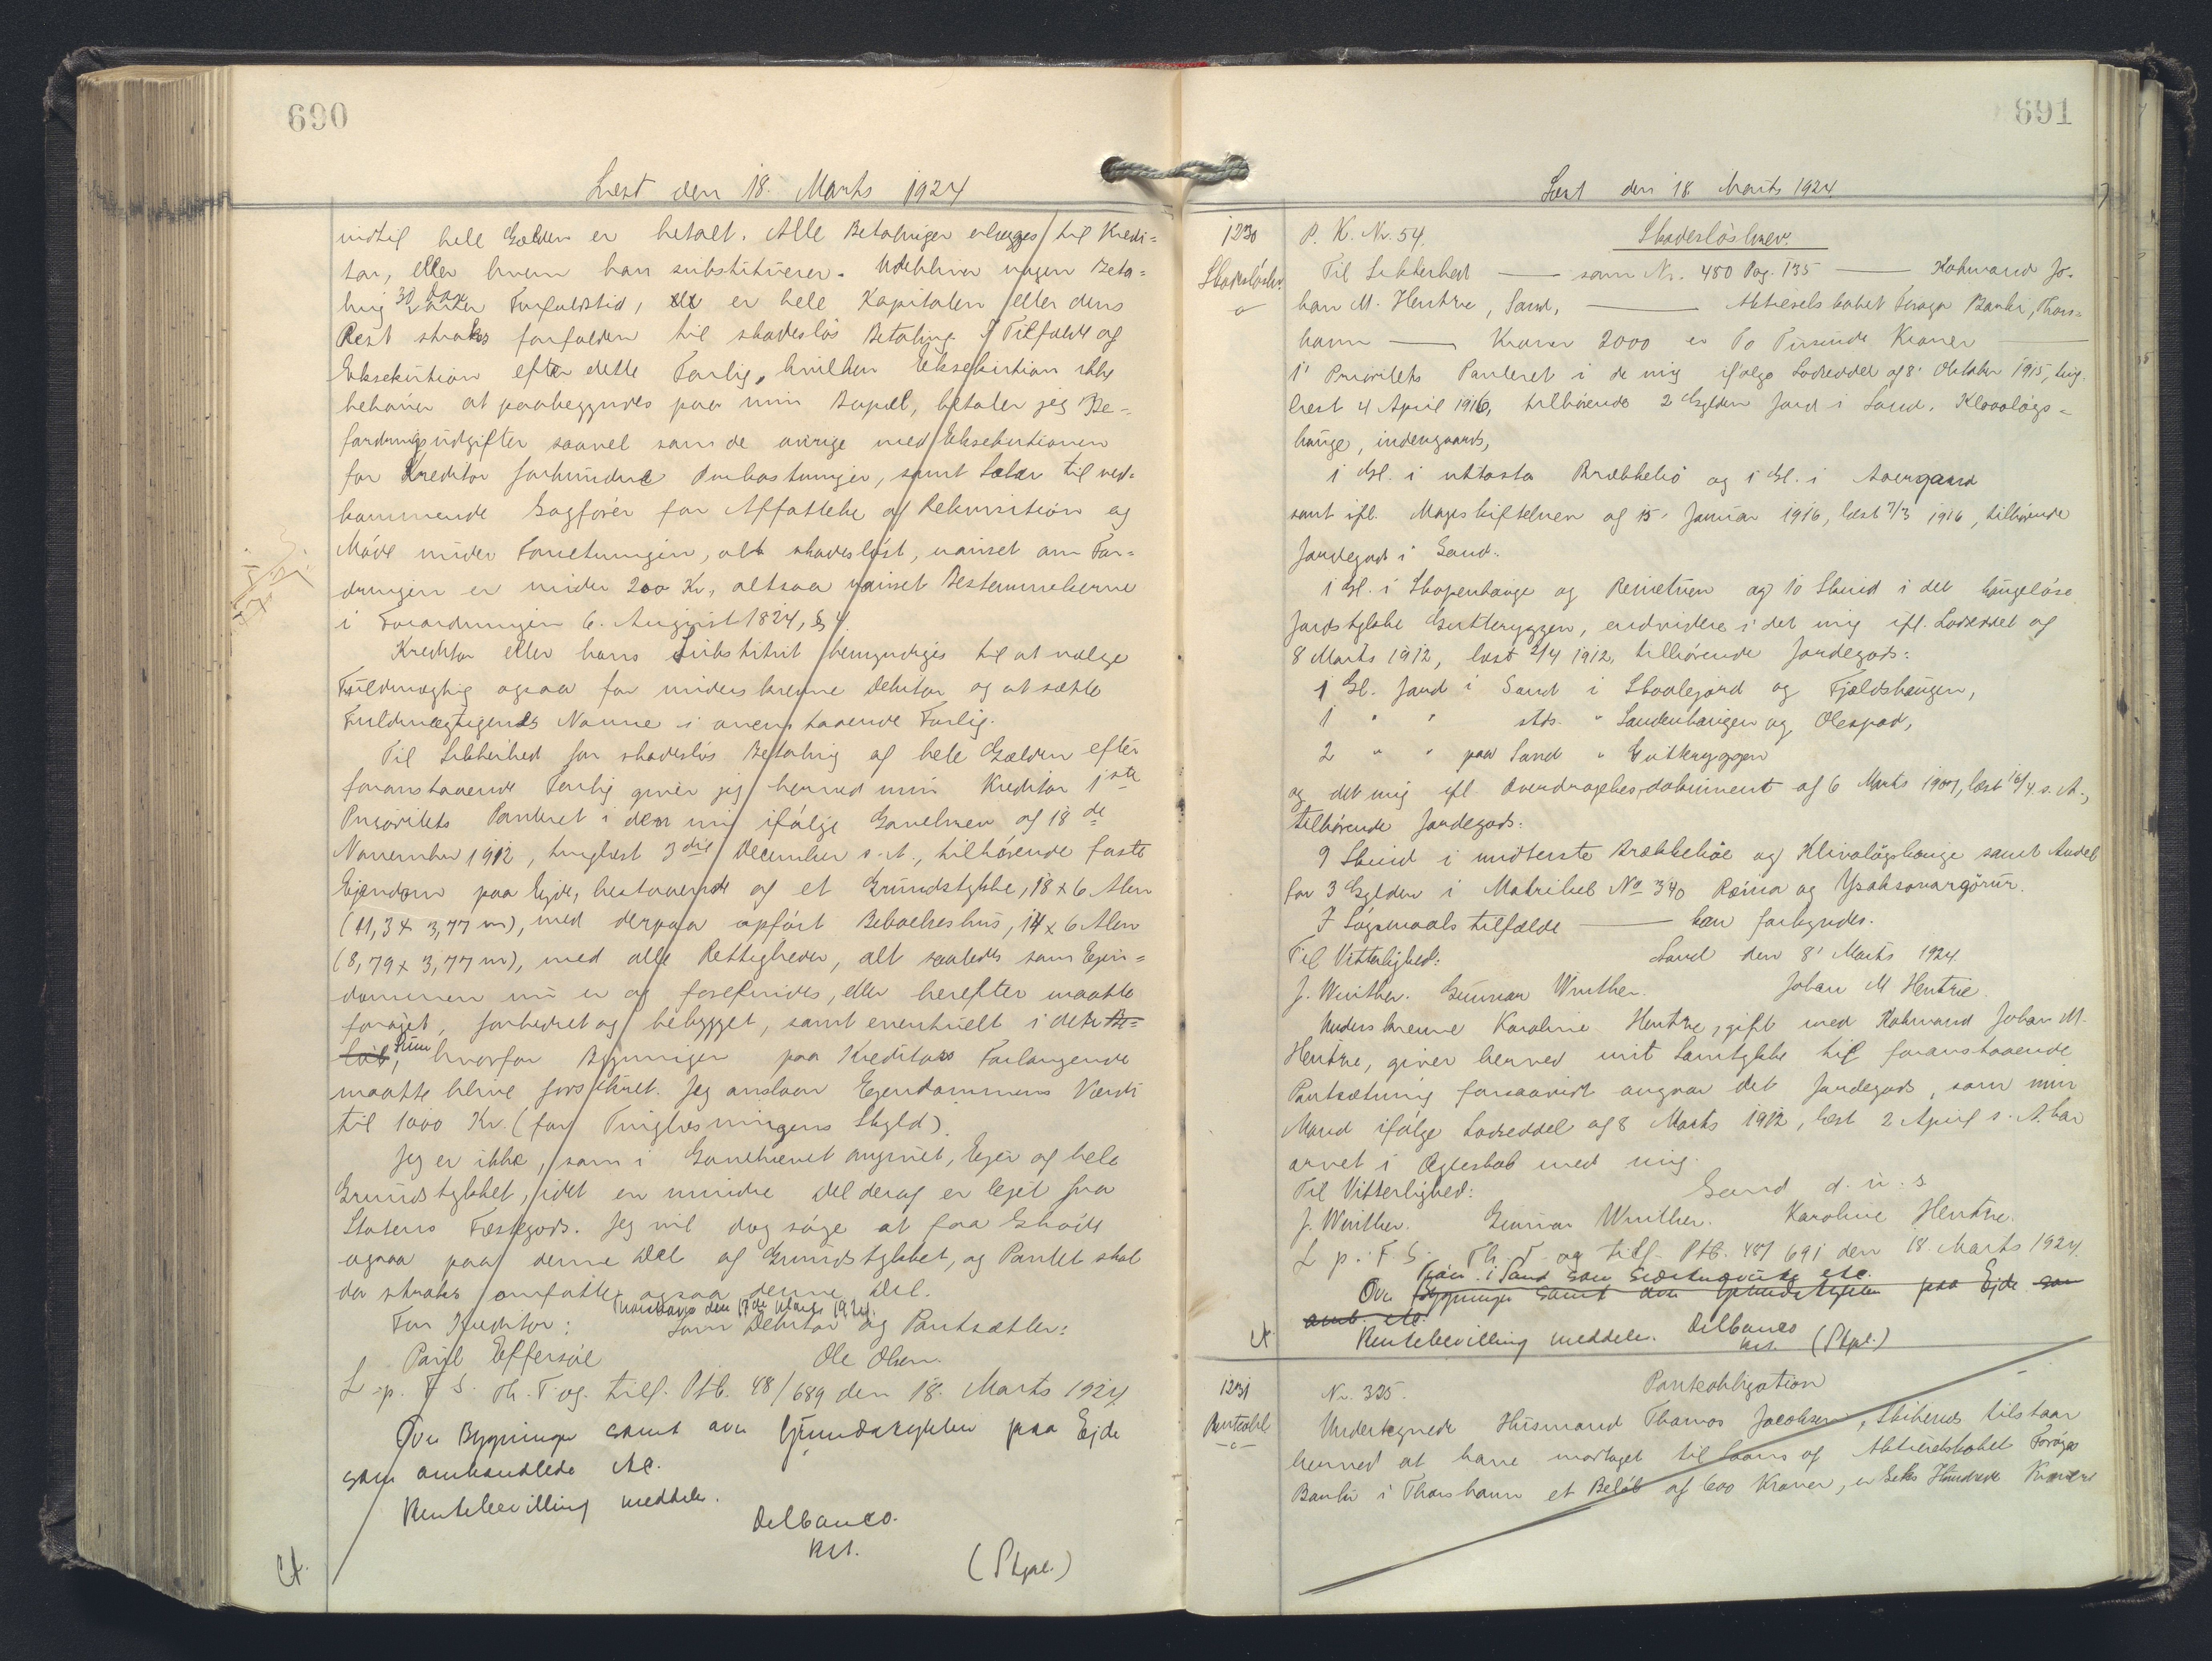 690
Læst den 18. Marts 1924
indtil hele Gælden er betalt. Alle Betalinger erlægges til Kredi=
tor, eller hvem han substituerer. Udebliver nogen Beta=
ling 30 Dage efter Forfaldstid, er hele Kapitalen eller dens
Rest straks forfalden til skadesløs Betaling. I Tilfælde af
Eksekution efter dette Forlig, hvilken Eksekution ikke
behøver at paabegyndes paa min Bopæl, betaler jeg Be=
fordringsudgifter saavel som de øvrige med Eksekutionen
for Kreditor forbundne Omkostninger, samt Salær til ved=
kommende Sagfører for Affattelse af Rekvisition og
Møde under Forretningen, alt skadesløst, uanset om For=
dringen er under 200 Kr., altsaa uanset Bestemmelserne
i Forordningen 6. August 1824, § 4.
Kreditor eller hans Substitut bemyndiges til at vælge
Fuldmægtig ogsaa for underskrevne Debitor og at sætte
Fuldmægtigens Navne i ovenstaaende Forlig.
Til Sikkerhed for skadesløs Betaling af hele Gælden efter
foranstaaende Forlig giver jeg herved min Kreditor 1ste
Prioritets Panteret i den mig ifølge Gavebrev af 18de
November 1912, tinglæst 3die December s. A., tilhørende faste
Ejendom paa Ejde, bestaaende af et Grundstykke, 18 x 6 Alen
(11,3 x 3,77 m), med derpaa opført Beboelseshus, 14 x 6 Alen
(8,79 x 3,77 m), med alle Rettigheder, alt saaledes som Ejen=
dommen nu er og forefindes, eller herefter maatte
forøget, forbedret og bebygget, samt eventuelt i det Be=
løb, Sum hvorfor Bygninger paa Kreditors Forlangende
maatte blive forsikret. Jeg anslaar Ejendommens Værdi
til 1000 Kr. (for Tinglæsningens Skyld).
Jeg er ikke, som i Gavebrevet angivet, Ejer af hele
Grundstykket, idet en mindre Del deraf er lejet fra
Statens Fæstegods. Jeg vil dog søge at faa Skøde
ogsaa paa denne Del af Grundstykket, og Pantet skal
da straks omfatte ogsaa denne Del.
Thorshavn den 17de Marts 1924.
For Kreditor: Som Debitor og Pantsætter:
Poul Effersøe Ole Olsen.
L. p. F. S. Th. T. og tilf. Ptb. 48/689 den 18. Marts 1924
Over Bygninger samt over Grundstykket paa Ejde
som omhandlede etc.
Rentebevilling meddeles.
Delbanco.
kst.
(Skpl.)
691
Læst den 18. Marts 1924.
1230 P. K. Nr. 54. Skadesløsbrev.
Skadesløsbr. Til Sikkerhed — som Nr. 480 Pag. 135 — Købmand Jo=
han M. Hentze, Sand, — Aktieselskabet Færøya Banki, Thors=
havn — Kroner 2000 er To Tusinde Kroner —
1' Prioritets Panteret i de mig ifølge Lodseddel af 8' Oktober 1915, ting=
læst 4 April 1916, tilhørende 2 Gylden Jord i Sand. Klovaløgs=
hauge, indengaards,
1 Gl. i uttasta Brækkeliø og 1 Gl. i Avergaard
samt ifl. Mageskiftebrev af 15' Januar 1916, læst 7/3 1916, tilhørende
Jordegods i Sand.
1 Gl. i Skopenhauge og Reinetuen og 10 Skind i det haugeløse
Jordstykke Gertteryggen, endvidere i det mig ifl. Lodseddel af
8 Marts 1912, læst 2/4 1912, tilhørende Jordegods:
1 Gl. Jord i Sand i Skoalegjord og Fjældshaugen,
1 " " sts. " Sandenhaugen og Olespad,
2 " " paa Sand " Guitteryggen
og det mig ifl. Overdragelsesdokument af 6 Marts 1907, læst 16/4 s. A.,
tilhørende Jordegods:
9 Skind i midterste Brækkeliøe og Klivaløgshauge samt Andel
for 3 Gylden i Matrikel No 340 Reina og Ysaksavargørur.
I Søgsmaalstilfælde — kan forkyndes.
Til Vitterlighed: Sand den 8' Marts 1924
J. Winther. Gunnar Winther. Johan M Hentze.
Underskrevne Karoline Hentze, gift med Købmand Johan M.
Hentze, giver herved mit Samtykke til foranstaaende
Pantsætning forsaavidt angaar det Jordegods, som min
Mand ifølge Lodseddel af 8 Marts 1912, læst 2 April s. A. har
arvet i Ægteskab med mig.
Til Vitterlighed: Sand d. u. s
J. Winther. Gunnar Winther. Karoline Hentze.
L. p. F. S. Th. T. og tilf. Ptb. 48/691 den 18. Marts 1924.
i Sand som etc.
Over Bygninger samt over Grundstykket paa Ejde som
omh. etc.
Rentebevilling meddeles. Delbanco
kst. (Skpl.)
1231 Nr. 325. Panteobligation
Panteobl. Undertegnede Husmand Thomas Jacobsen, tilstaar
herved at have modtaget til Laans af Aktieselskabet Førøya
Banki i Thorshavn et Beløb af 600 Kroner, er Seks Hundrede Kroner